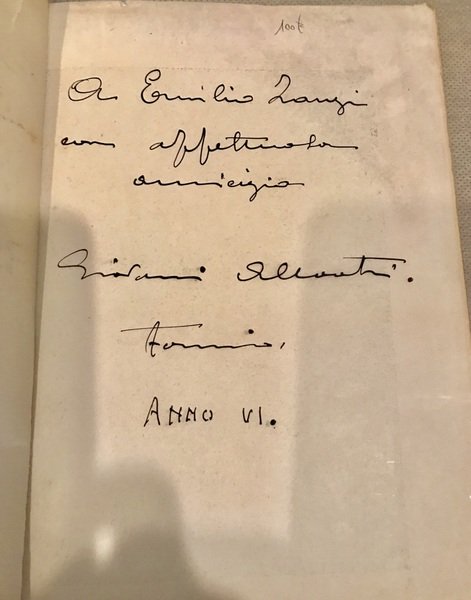 100€
A Emilio Zanzi
con affettuosa
amicizia
Giovanni
Torino,
ANNO VI.